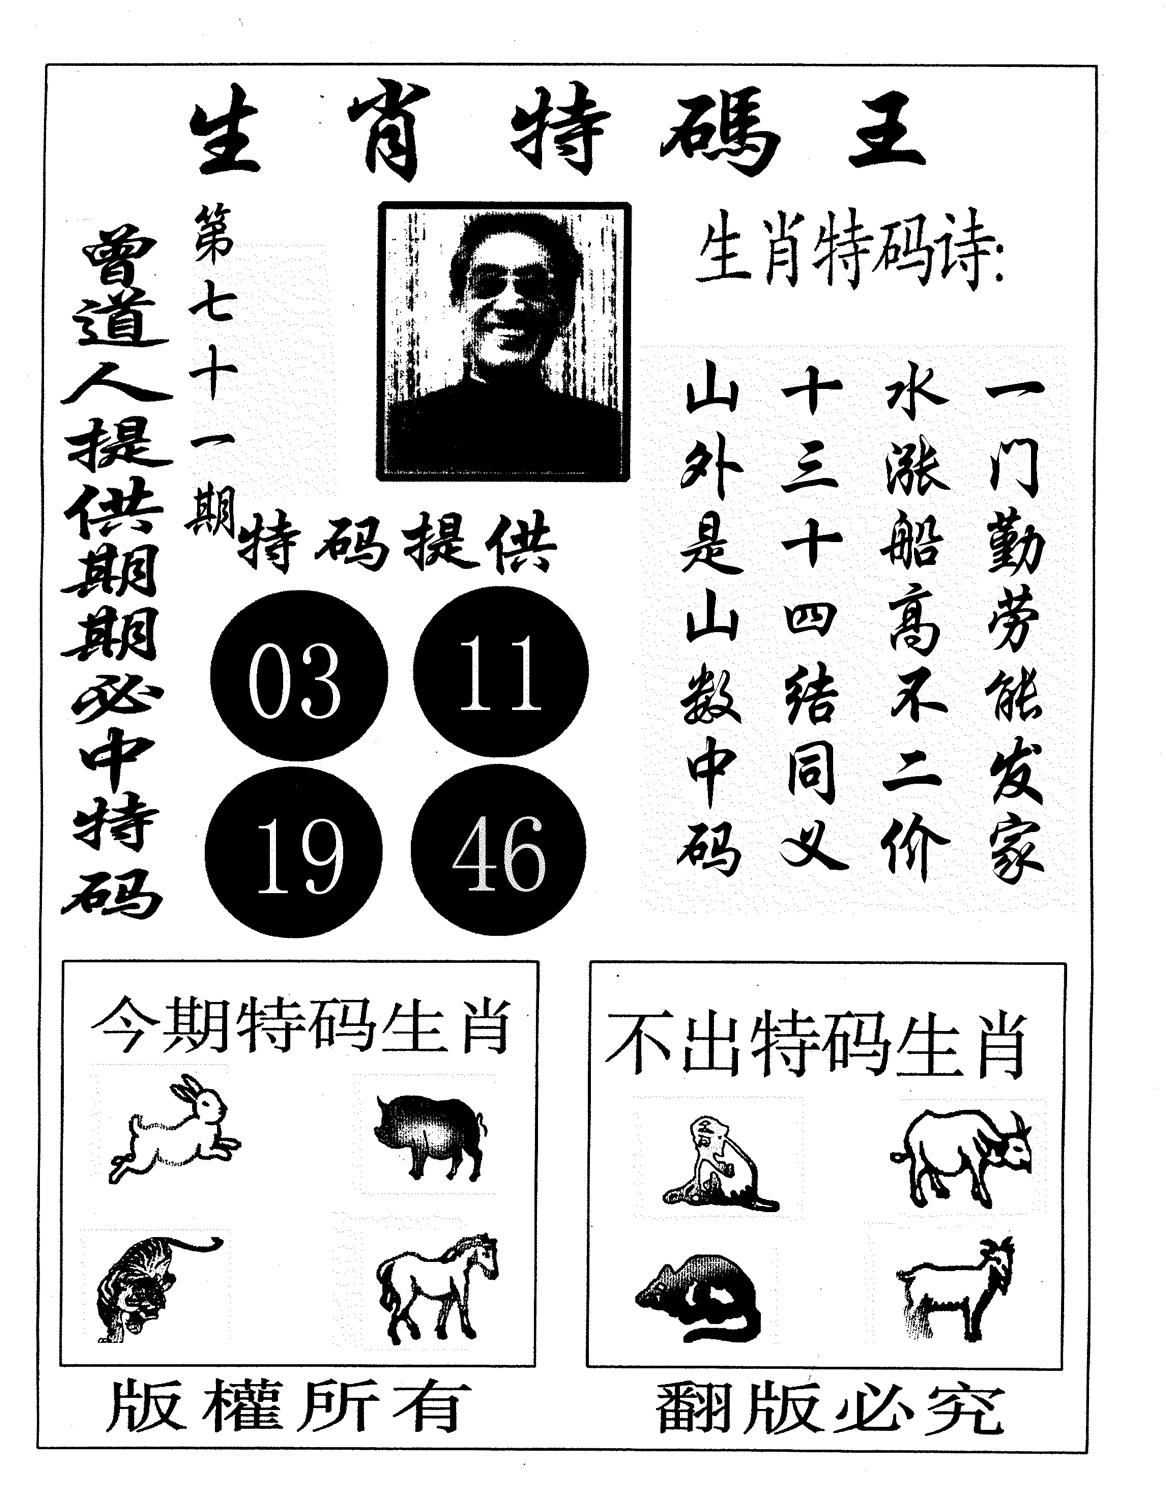 生肖特碼王
曾道人提供期期必中特码
第七十一期
特码提供
03 11
19 46
生肖特码诗:
一门勤劳能发家
水涨船高不二价
十三十四结同义
山外是山数中码
今期特码生肖
不出特码生肖
版權所有
翻版必究